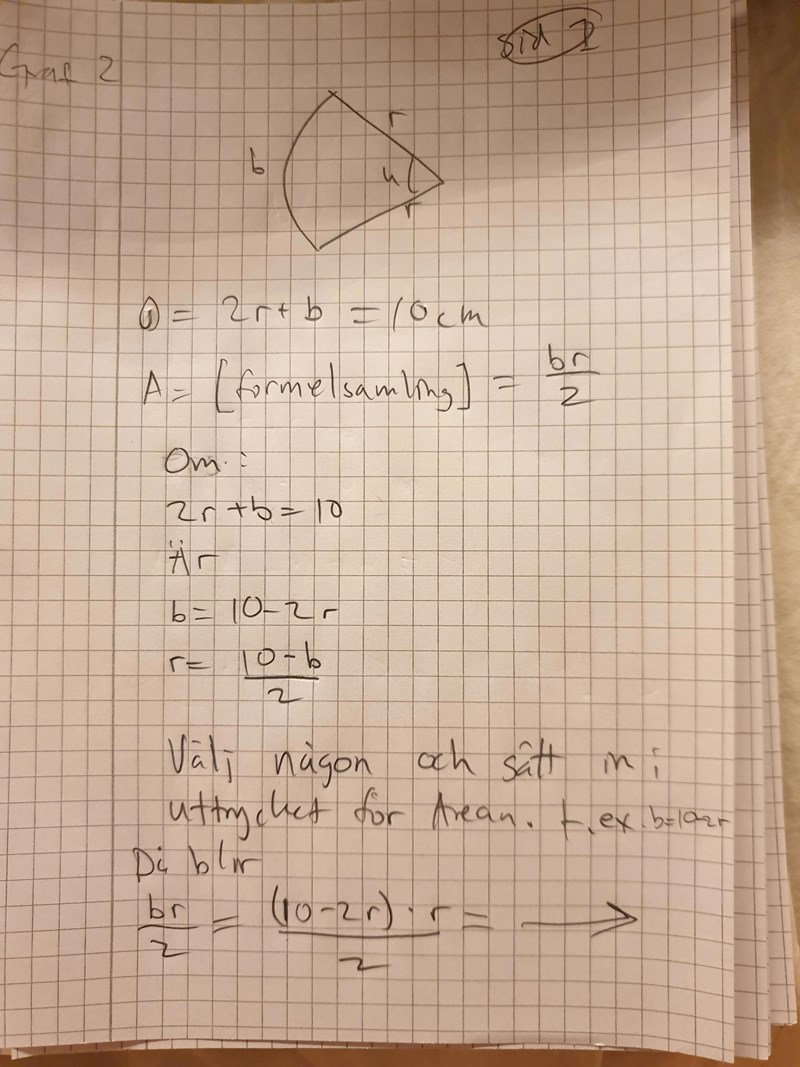 sid 1
Graf 2
r
b
u
r
① = 2r + b = 10cm
A = [formelsamling] = br/2
Om:
2r + b = 10
Är
b = 10 - 2r
r = (10 - b)/2
Välj någon och sätt in i
uttrycket för Arean. t.ex. b=10-2r
Då blir
br/2 = (10-2r)·r/2 = →